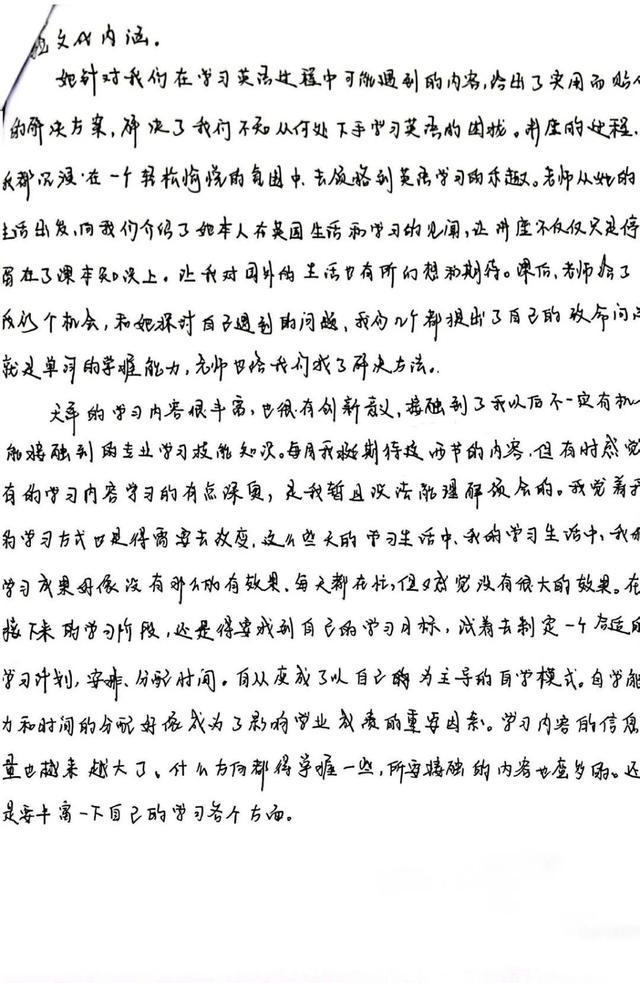 文化内涵。
她针对我们在学习英语过程中可能遇到的内容,给出了实用而贴
的解决方案,解决了我们不知从何处下手学习英语的困扰。讲座的过程,
我都沉浸在一个轻松愉悦的氛围中,去领略到英语学习的乐趣。老师从她的
生活出发,向我们介绍了她本人在英国生活和学习的见闻,让讲座不仅仅只是停
留在了课本知识上。让我对国外的生活也有所幻想和期待。课后,老师给了
我们个机会,和她探讨自己遇到的问题,我们几个都提出了自己的致命问
就是单词的掌握能力,老师也给我们找了解决方法。
大年的学习内容很丰富,也很有创新意义,接触到了我以后不一定有机
能接触到的专业学习技能知识。每月我挺期待这两节的内容,但有时感觉
有的学习内容学习的有点深奥,是我暂且没法能理解领会的。我觉着
的学习方式也是得需要去改变,这么些天的学习生活中,我的学习生活中,我
学习成果好像没有那么的有效果,每天都在忙,但又感觉没有很大的效果。在
接下来的学习阶段,还是得要找到自己的学习目标,试着去制定一个合适的
学习计划,安排、分配时间。自从变成了以自己的为主导的自学模式。自学能
力和时间的分配好像成为了影响学业成表的重要因素。学习内容的信息
量也越来越大了。什么方向都得掌握一些,所要接触的内容也蛮多的。还
是要丰富一下自己的学习各个方面。